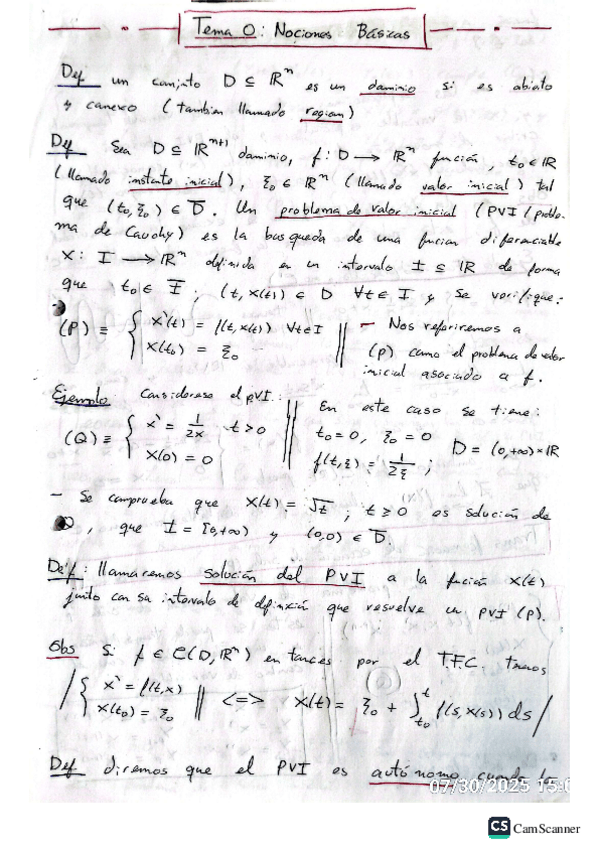 Tema 0: Nociones Básicas
Def un conjunto D ⊆ ℝⁿ es un dominio si es abierto
y conexo (tambien llamado region)
Def Sea D ⊆ ℝⁿ⁺¹ dominio, f: D → ℝⁿ función, t₀ ∈ ℝ
(llamado instante inicial), ξ₀ ∈ ℝⁿ (llamado valor inicial) tal
que (t₀, ξ₀) ∈ D̅. Un problema de valor inicial (PVI / proble-
ma de Cauchy) es la busqueda de una funcion diferenciable
x: I → ℝⁿ definida en un intervalo I ⊆ ℝ de forma
que t₀ ∈ I̅; (t, x(t)) ∈ D ∀t ∈ I y se verifique:
(P) ≡ { x'(t) = f(t, x(t)) ∀t ∈ I
x(t₀) = ξ₀
— Nos referiremos a
(P) como el problema de valor
inicial asociado a f.
Ejemplo Considerese el PVI:
(Q) ≡ { x' = 1/2x t > 0
x(0) = 0
En este caso se tiene:
t₀ = 0, ξ₀ = 0
f(t, ξ) = 1/2ξ ; D = (0, +∞) × ℝ
— Se comprueba que x(t) = √t ; t ≥ 0 es solución de
, que I = [0, +∞) y (0,0) ∈ D̅.
Def: llamaremos solución del PVI a la función x(t)
junto con su intervalo de definición que resuelve un PVI (P).
Obs Si f ∈ C(D, ℝⁿ) entonces por el T.F.C. tenemos
/ { x' = f(t, x)
x(t₀) = ξ₀ || <=> x(t) = ξ₀ + ∫ₜ₀ᵗ f(s, x(s)) ds /
Def diremos que el PVI es autónomo cuando la
07/30/2025 15:0
CS CamScanner